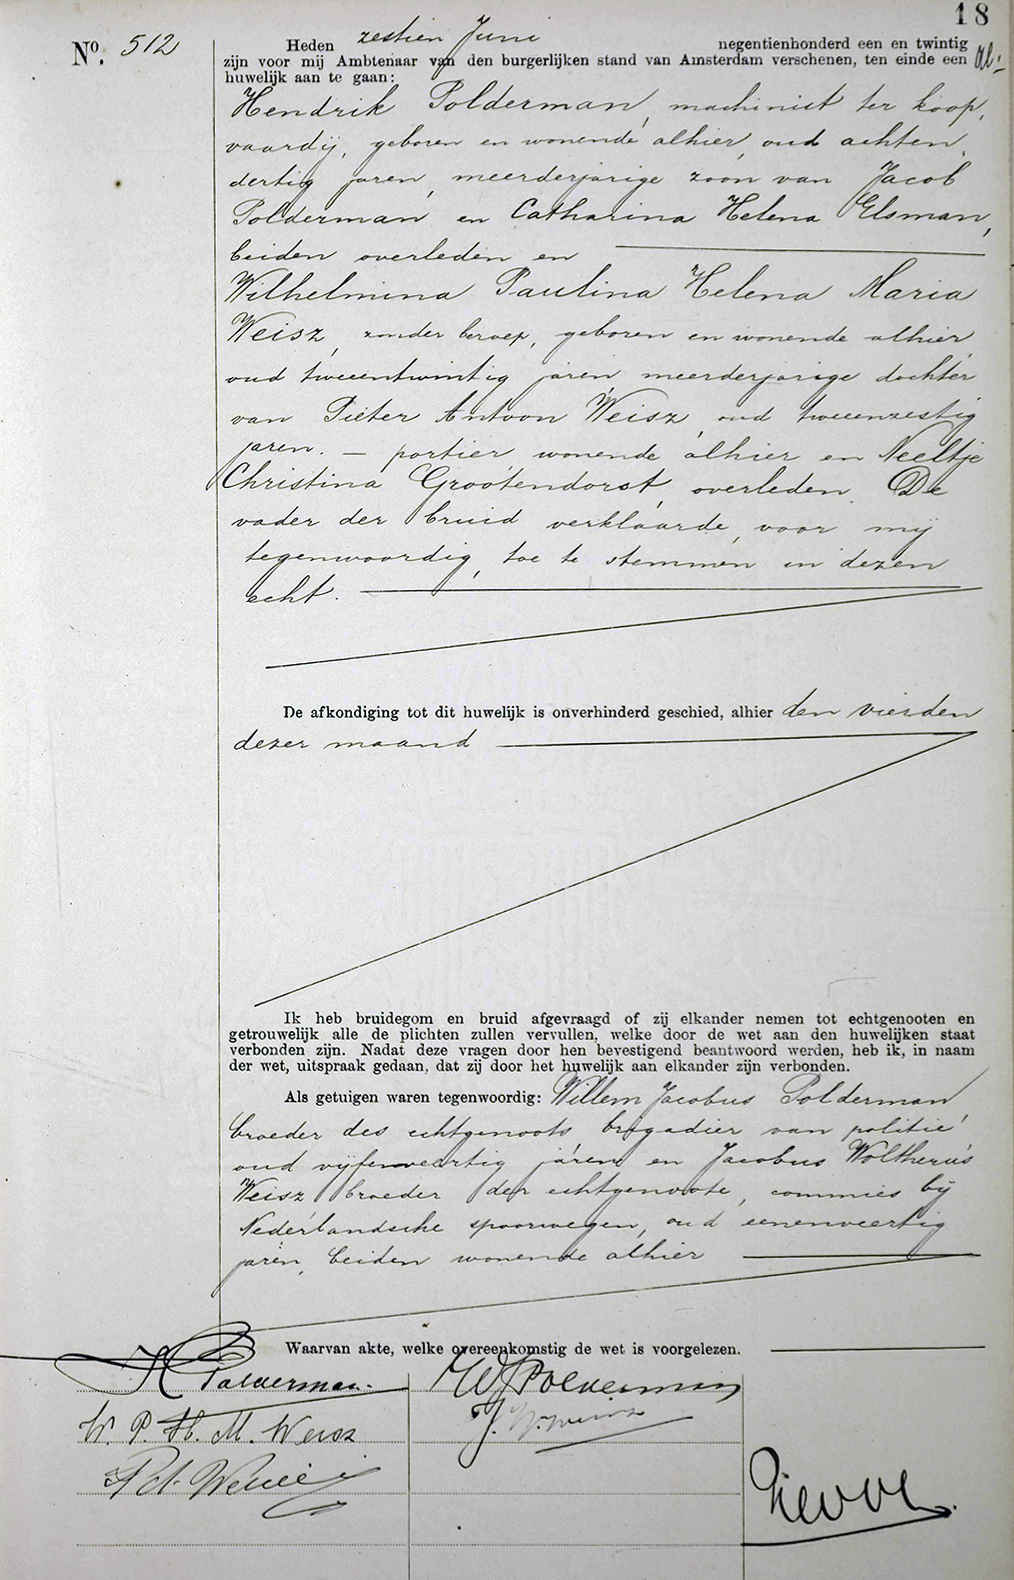 18
No. 512
Heden zestien Juni negentienhonderd een en twintig
zijn voor mij Ambtenaar van den burgerlijken stand van Amsterdam verschenen, ten einde een
huwelijk aan te gaan:
Hendrik Polderman, machinist ter koop,
vaardij, geboren en wonende alhier, oud achten,
dertig jaren, meerderjarige zoon van Jacob
Polderman en Catharina Helena Elsman,
beiden overleden en
Wilhelmina Paulina Helena Maria
Weisz, zonder beroep, geboren en wonende alhier,
oud tweeentwintig jaren, meerderjarige dochter
van Pieter Antoon Weisz, oud tweeenzestig
jaren. — portier wonende alhier en Neeltje
Christina Grootendorst, overleden. De
vader der bruid verklaarde, voor mij
tegenwoordig, toe te stemmen in dezen
echt.
De afkondiging tot dit huwelijk is onverhinderd geschied, alhier den vierden
dezer maand
Ik heb bruidegom en bruid afgevraagd of zij elkander nemen tot echtgenooten en
getrouwelijk alle de plichten zullen vervullen, welke door de wet aan den huwelijken staat
verbonden zijn. Nadat deze vragen door hen bevestigend beantwoord werden, heb ik, in naam
der wet, uitspraak gedaan, dat zij door het huwelijk aan elkander zijn verbonden.
Als getuigen waren tegenwoordig: Willem Jacobus Polderman
broeder des echtgenoots, brigadier van politie,
oud vijfenveertig jaren en Jacobus Woltherus
Weisz broeder der echtgenoote, commies bij
Nederlandsche spoorwegen, oud eenenveertig
jaren, beiden wonende alhier
Waarvan akte, welke overeenkomstig de wet is voorgelezen.
H Polderman. WJPolderman
W. P. H. M. Weisz J. W. Weisz